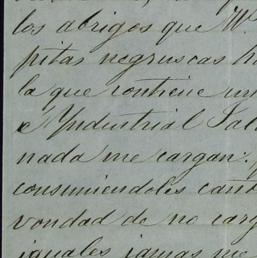 los abrigos que M.
pitas negruscas h
la que contiene un
e Yndustrial Sal
nada me cargan.
consumiendoles caño
vondad de no carg
iguales jamas me